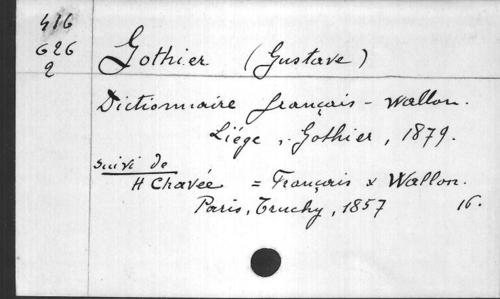 416
G26
2
Gothier (Gustave)
Dictionnaire français - Wallon.
Liége, Gothier, 1879.
Suivi de
H Chavée = Français & Wallon.
Paris, Truchy, 1857 16.